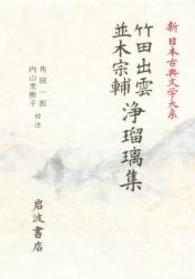 新日本古典文学大系
竹田出雲
並木宗輔
浄瑠璃集
角田一郎
内山美樹子
校注
岩波書店